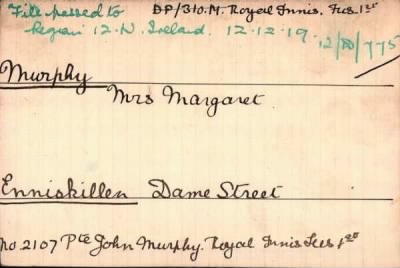 File passed to DP/310.M. Royal Innis. Fus. 1st
Region 12.N. Ireland. 12.12.19. 12/D/775
Murphy
Mrs Margaret
Enniskillen Dame Street
No. 2107 Pte John Murphy. Royal Innis Fus 1st